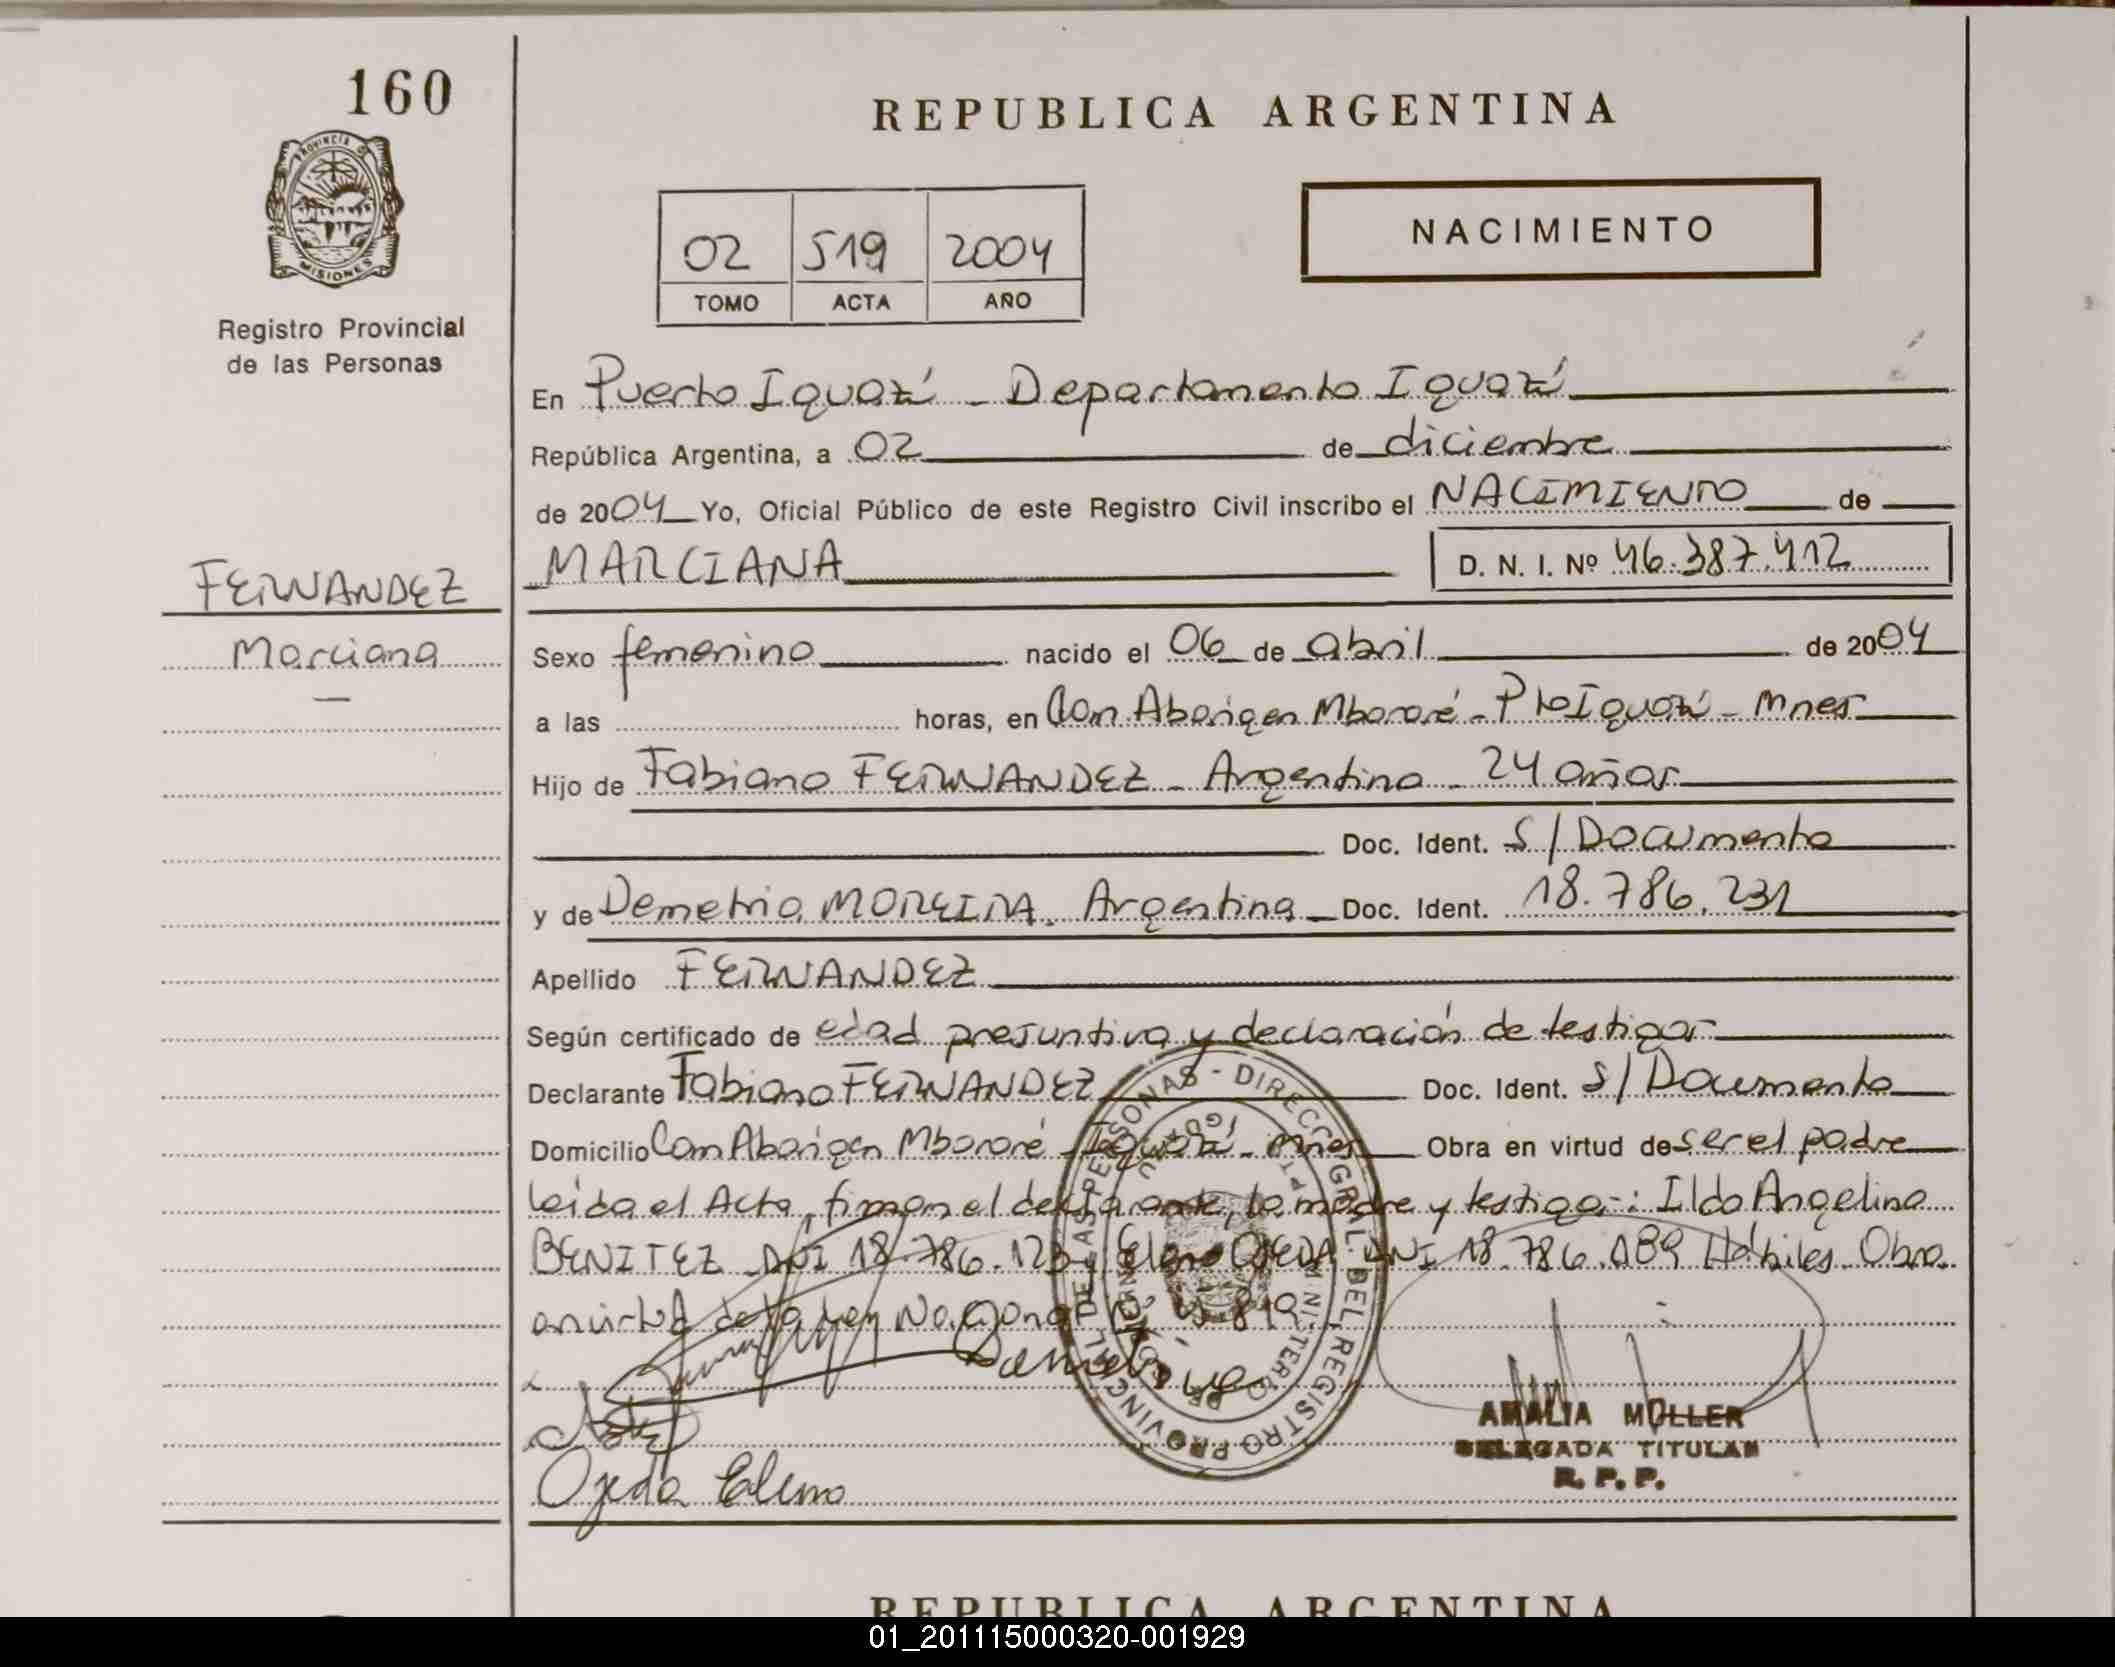 160
REPUBLICA ARGENTINA
PROVINCIA D
MISIONES
NACIMIENTO
02 519 2004
TOMO ACTA AÑO
Registro Provincial
de las Personas
En Puerto Iguazú - Departamento Iguazú
República Argentina, a 02 de diciembre
de 2004 Yo, Oficial Público de este Registro Civil inscribo el NACIMIENTO de
MARCIANA D. N. I. Nº 46.387.412
FERNANDEZ
Marciana
Sexo femenino nacido el 06 de abril de 2004
a las horas, en Com Aborigen Mbororé - Pto Iguazú - Mnes
Hijo de Fabiano FERNANDEZ - Argentino - 24 años
Doc. Ident. S/Documento
y de Demetria MOREIRA. Argentina Doc. Ident. 18.786.231
Apellido FERNANDEZ
Según certificado de edad presuntiva y declaración de testigos
Declarante Fabiano FERNANDEZ Doc. Ident. S/Documento
Domicilio Com Aborigen Mbororé - Iguazú - Mnes Obra en virtud de ser el padre
leída el Acta, firman el declarante, la madre y testigos: Ilda Angelina
BENITEZ DNI 18.786.123 y Elena OJEDA DNI 18.786.189 Hábiles. Obra
en virtud de la Ley Nacional
Ojeda Elena
AMALIA MULLER
DELEGADA TITULAR
R. P. P.
REPUBLICA ARGENTINA
01_201115000320-001929